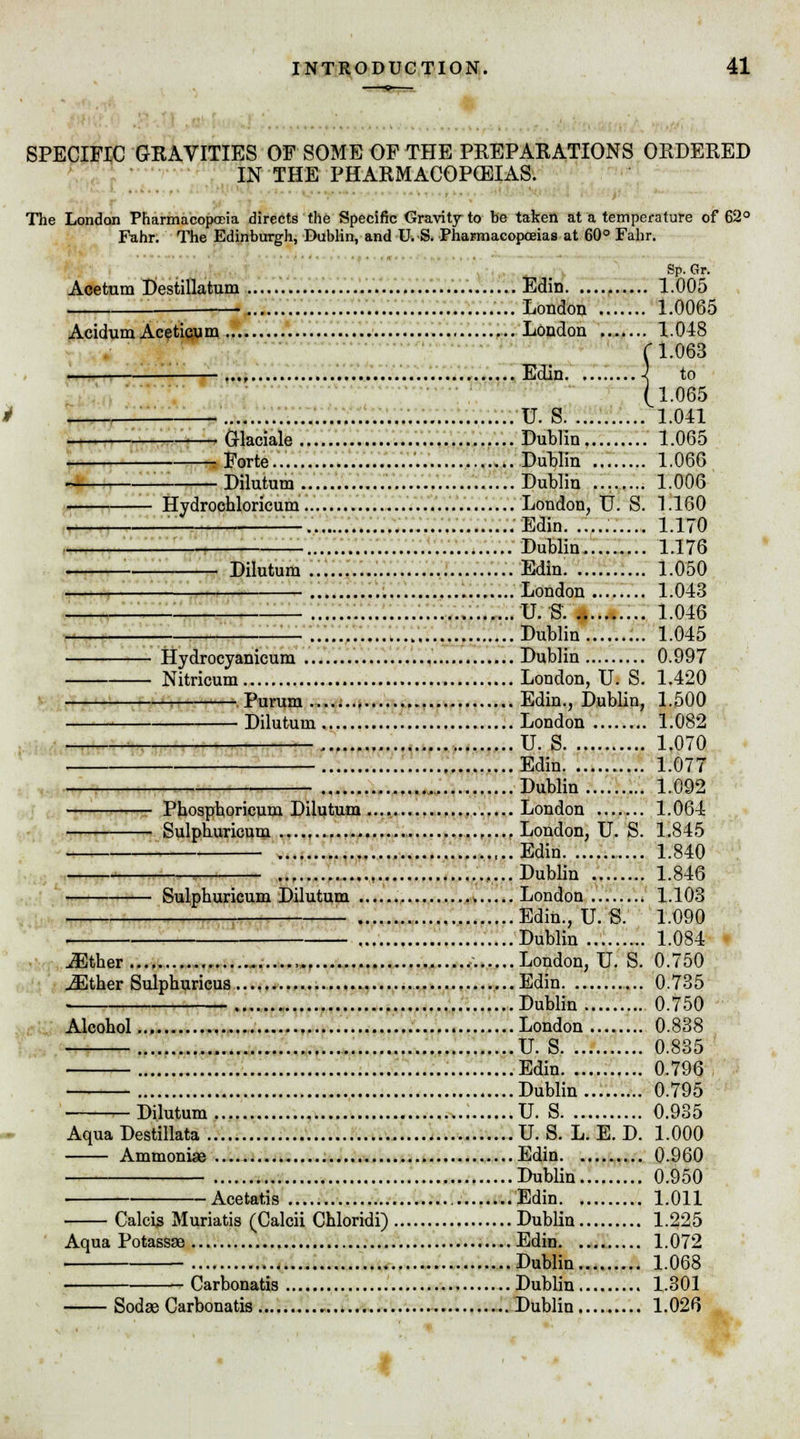 INTRODUCTION. 41
SPECIFIC GRAVITIES OF SOME OF THE PREPARATIONS ORDERED
IN THE PHARMACOPŒIAS.
The London Pharmacopœia directs the Specific Gravity to be taken at a temperature of 62°
Fahr. The Edinburgh, Dublin, and U. S. Pharmacopœias at 60° Fahr.
Sp. Gr.
Acetum Destillatum ........ Edin. ........ 1.005
——— ........ London ........ 1.0065
Acidum Aceticum ........ London ........ 1.048
——— ........ Edin. ........ { 1.063 to 1.065
——— ........ U. S. ........ 1.041
——— Glaciale ........ Dublin ........ 1.065
——— Forte ........ Dublin ........ 1.066
——— Dilutum ........ Dublin ........ 1.006
——— Hydrochloricum ........ London, U. S. 1.160
——— ........ Edin. ........ 1.170
——— ........ Dublin ........ 1.176
——— Dilutum ........ Edin. ........ 1.050
——— ........ London ........ 1.043
——— ........ U. S. ........ 1.046
——— ........ Dublin ........ 1.045
——— Hydrocyanicum ........ Dublin ........ 0.997
——— Nitricum ........ London, U. S. 1.420
——— Purum ........ Edin., Dublin, 1.500
——— Dilutum ........ London ........ 1.082
——— ........ U. S. ........ 1.070
——— ........ Edin. ........ 1.077
——— ........ Dublin ........ 1.092
——— Phosphoricum Dilutum ........ London ........ 1.064
——— Sulphuricum ........ London, U. S. 1.845
——— ........ Edin. ........ 1.840
——— ........ Dublin ........ 1.846
——— Sulphuricum Dilutum ........ London ........ 1.103
——— ........ Edin., U. S. 1.090
——— ........ Dublin ........ 1.084
Æther ........ London, U. S. 0.750
Æther Sulphuricus ........ Edin. ........ 0.735
——— ........ Dublin ........ 0.750
Alcohol ........ London ........ 0.838
——— ........ U. S. ........ 0.835
——— ........ Edin. ........ 0.796
——— ........ Dublin ........ 0.795
——— Dilutum ........ U. S. ........ 0.935
Aqua Destillata ........ U. S. L. E. D. 1.000
——— Ammoniæ ........ Edin. ........ 0.960
——— ........ Dublin ........ 0.950
——— Acetatis ........ Edin. ........ 1.011
——— Calcis Muriatis (Calcii Chloridi) ........ Dublin ........ 1.225
Aqua Potassæ ........ Edin. ........ 1.072
——— ........ Dublin ........ 1.068
——— Carbonatis ........ Dublin ........ 1.301
——— Sodæ Carbonatis ........ Dublin ........ 1.026